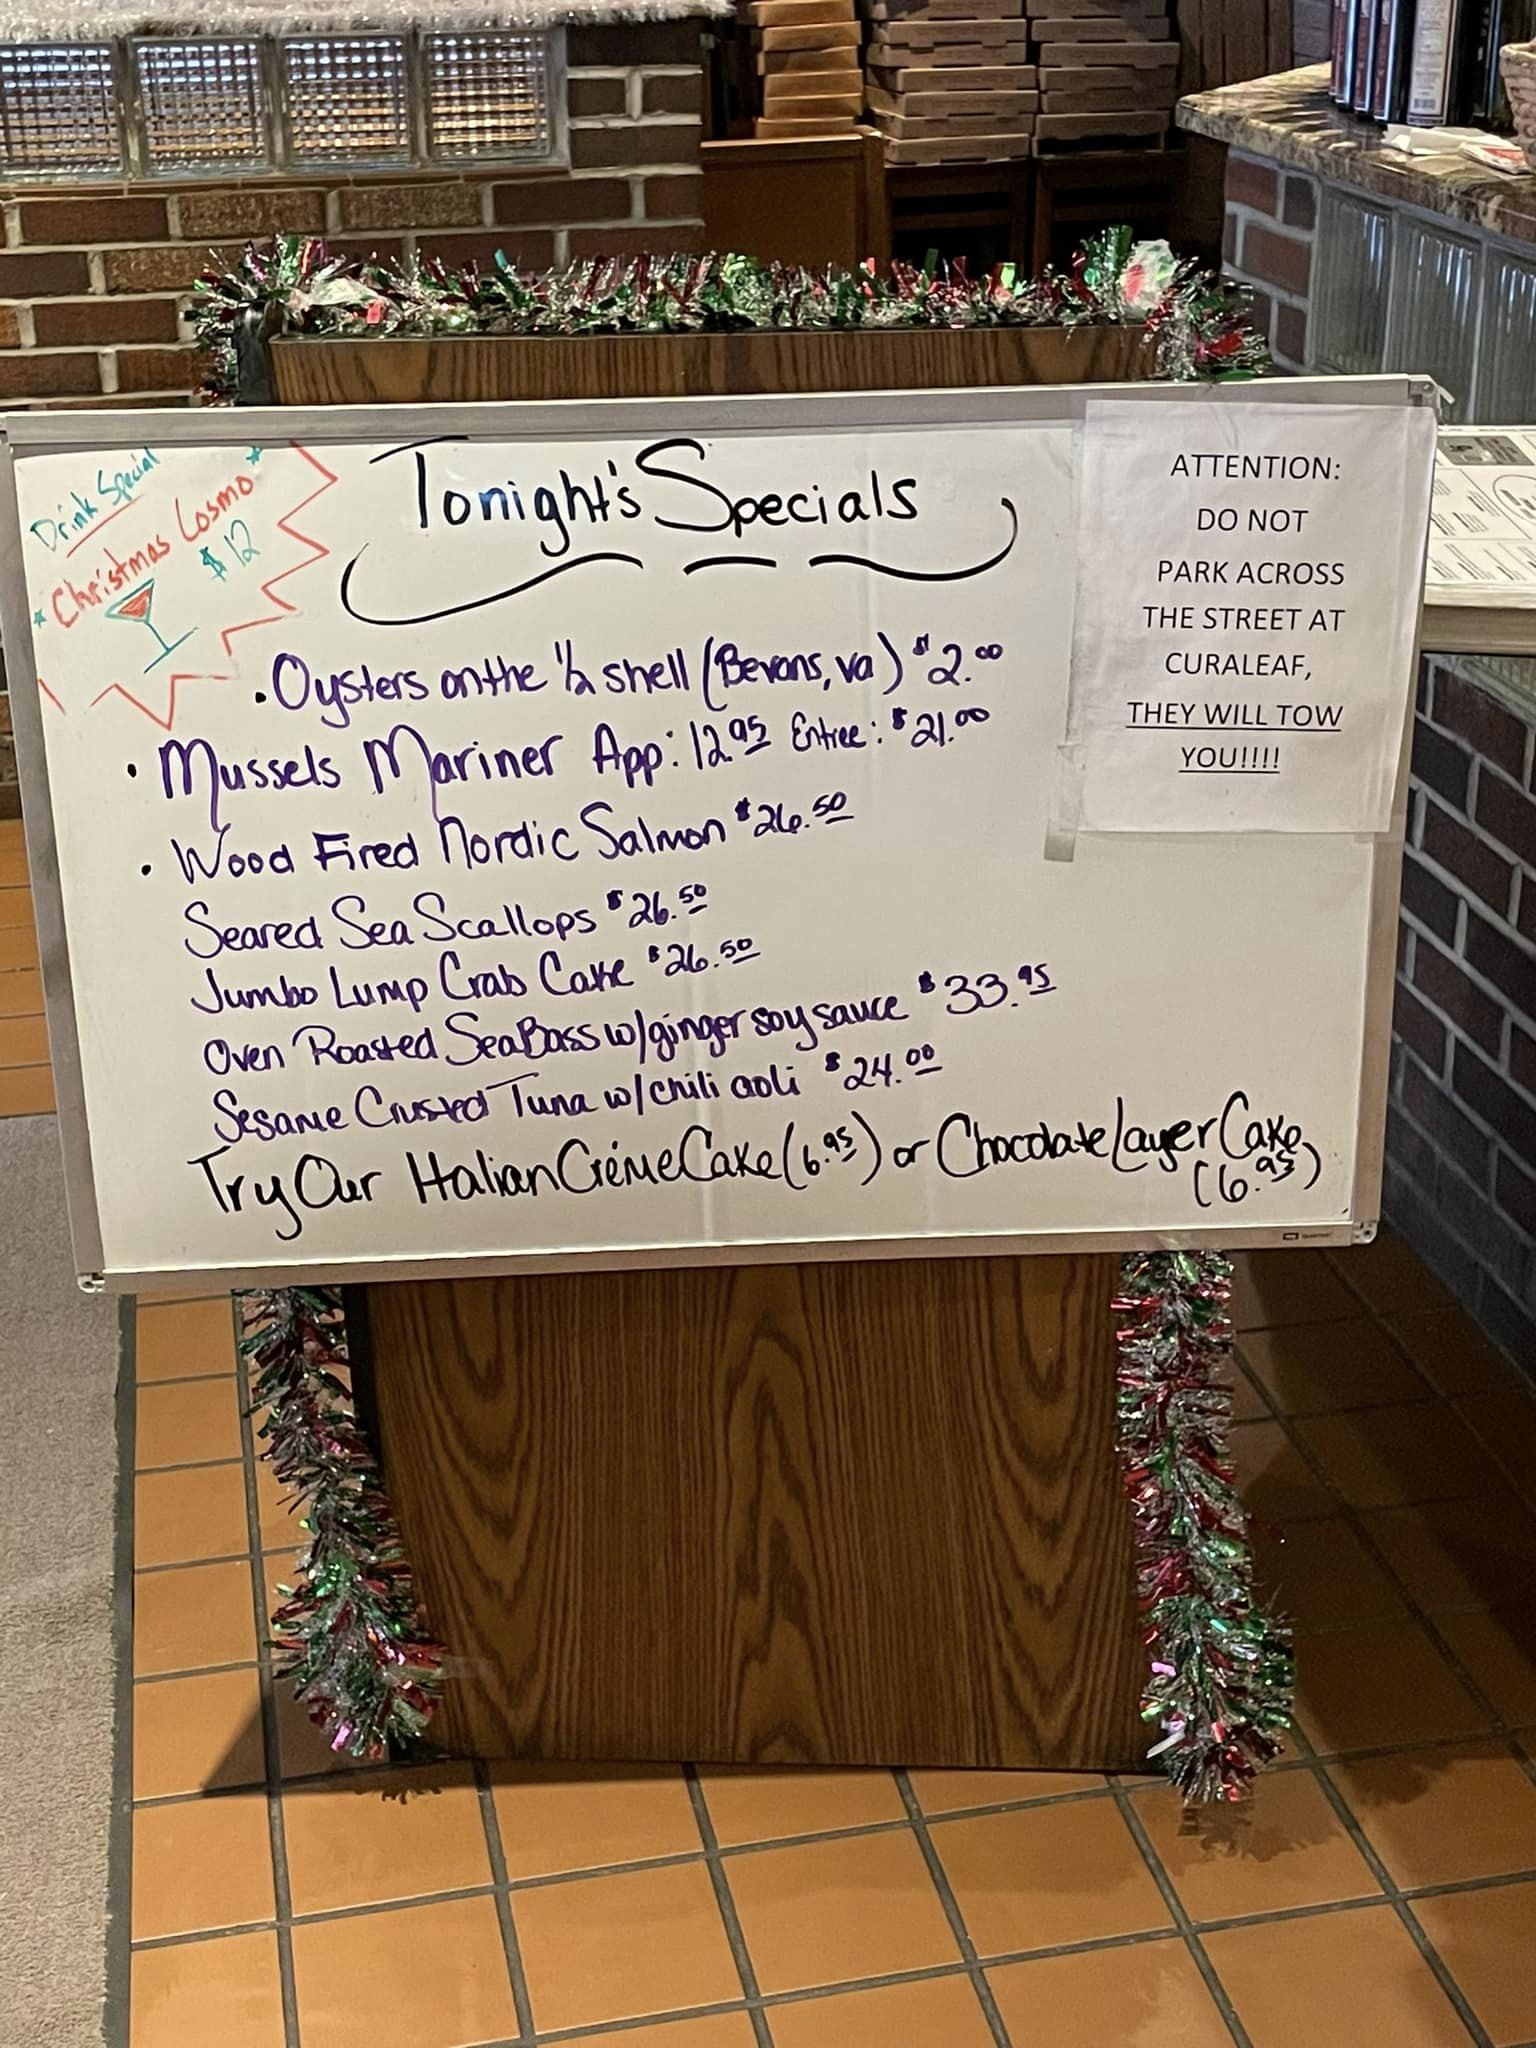 Drink Special
Christmas Cosmo
$12
Tonight's Specials
• Oysters on the 1/2 shell (Bevans, va) $2.00
• Mussels Mariner App: 12.95 Entree: $21.00
• Wood Fired Nordic Salmon $26.50
Seared Sea Scallops $26.50
Jumbo Lump Crab Cake $26.50
Oven Roasted SeaBass w/ginger soy sauce $33.95
Sesame Crusted Tuna w/chili aoli $24.00
Try Our Italian Créme Cake (6.95) or Chocolate Layer Cake
(6.95)
ATTENTION:
DO NOT
PARK ACROSS
THE STREET AT
CURALEAF,
THEY WILL TOW
YOU!!!!